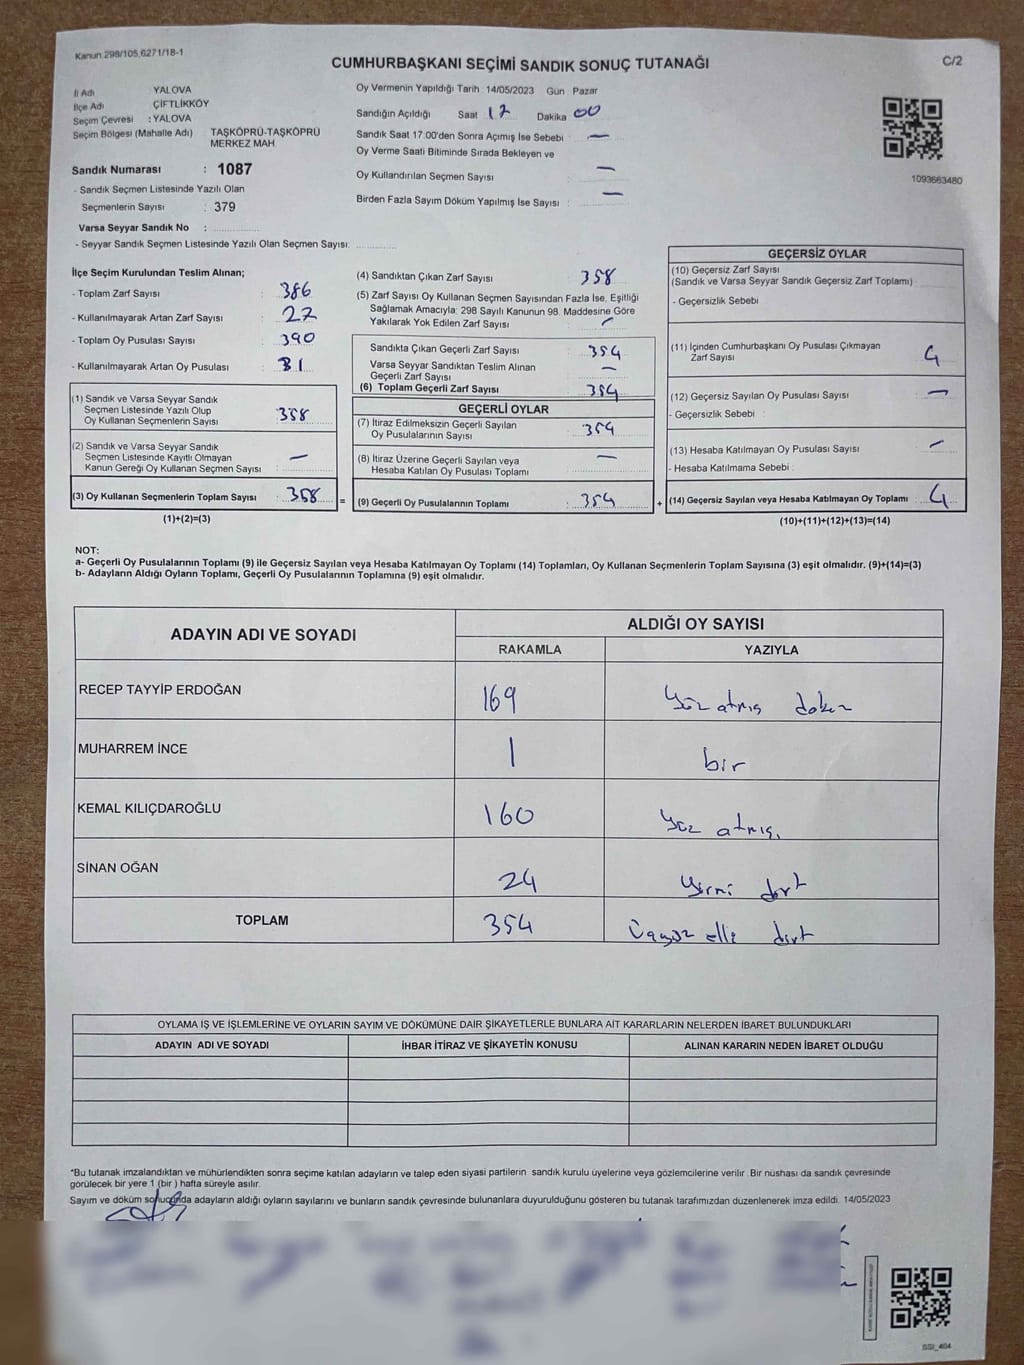 Kanun 298/105,6271/18-1
CUMHURBAŞKANI SEÇİMİ SANDIK SONUÇ TUTANAĞI
C/2
İl Adı YALOVA
İlçe Adı ÇİFTLİKKÖY
Seçim Çevresi : YALOVA
Seçim Bölgesi (Mahalle Adı) TAŞKÖPRÜ-TAŞKÖPRÜ
MERKEZ MAH.
Sandık Numarası : 1087
- Sandık Seçmen Listesinde Yazılı Olan
Seçmenlerin Sayısı : 379
Varsa Seyyar Sandık No :
- Seyyar Sandık Seçmen Listesinde Yazılı Olan Seçmen Sayısı:
Oy Vermenin Yapıldığı Tarih 14/05/2023 Gün : Pazar
Sandığın Açıldığı Saat 17 Dakika 00
Sandık Saat 17:00'den Sonra Açımış İse Sebebi : —
Oy Verme Saati Bitiminde Sırada Bekleyen ve
Oy Kullandırılan Seçmen Sayısı —
Birden Fazla Sayım Döküm Yapılmış İse Sayısı : —
1093663480
İlçe Seçim Kurulundan Teslim Alınan;
- Toplam Zarf Sayısı : 386
- Kullanılmayarak Artan Zarf Sayısı : 27
- Toplam Oy Pusulası Sayısı : 390
- Kullanılmayarak Artan Oy Pusulası : 31
(1) Sandık ve Varsa Seyyar Sandık
Seçmen Listesinde Yazılı Olup
Oy Kullanan Seçmenlerin Sayısı : 358
(2) Sandık ve Varsa Seyyar Sandık
Seçmen Listesinde Kayıtlı Olmayan
Kanun Gereği Oy Kullanan Seçmen Sayısı : —
(3) Oy Kullanan Seçmenlerin Toplam Sayısı : 358 =
(1)+(2)=(3)
(4) Sandıktan Çıkan Zarf Sayısı : 358
(5) Zarf Sayısı Oy Kullanan Seçmen Sayısından Fazla İse, Eşitliği
Sağlamak Amacıyla: 298 Sayılı Kanunun 98. Maddesine Göre
Yakılarak Yok Edilen Zarf Sayısı : —
Sandıkta Çıkan Geçerli Zarf Sayısı : 354
Varsa Seyyar Sandıktan Teslim Alınan
Geçerli Zarf Sayısı : —
(6) Toplam Geçerli Zarf Sayısı : 354
GEÇERLİ OYLAR
(7) İtiraz Edilmeksizin Geçerli Sayılan
Oy Pusulalarının Sayısı : 354
(8) İtiraz Üzerine Geçerli Sayılan veya
Hesaba Katılan Oy Pusulası Toplamı : —
(9) Geçerli Oy Pusulalarının Toplamı : 354 +
GEÇERSİZ OYLAR
(10) Geçersiz Zarf Sayısı
(Sandık ve Varsa Seyyar Sandık Geçersiz Zarf Toplamı) :
- Geçersizlik Sebebi
(11) İçinden Cumhurbaşkanı Oy Pusulası Çıkmayan
Zarf Sayısı : 4
(12) Geçersiz Sayılan Oy Pusulası Sayısı : —
- Geçersizlik Sebebi :
(13) Hesaba Katılmayan Oy Pusulası Sayısı : —
- Hesaba Katılmama Sebebi :
(14) Geçersiz Sayılan veya Hesaba Katılmayan Oy Toplamı : 4
(10)+(11)+(12)+(13)=(14)
NOT:
a- Geçerli Oy Pusulalarının Toplamı (9) ile Geçersiz Sayılan veya Hesaba Katılmayan Oy Toplamı (14) Toplamları, Oy Kullanan Seçmenlerin Toplam Sayısına (3) eşit olmalıdır. (9)+(14)=(3)
b- Adayların Aldığı Oyların Toplamı, Geçerli Oy Pusulalarının Toplamına (9) eşit olmalıdır.
ADAYIN ADI VE SOYADI ALDIĞI OY SAYISI
RAKAMLA YAZIYLA
RECEP TAYYİP ERDOĞAN 169 Yüz atmış dokuz
MUHARREM İNCE 1 bir
KEMAL KILIÇDAROĞLU 160 Yüz atmış.
SİNAN OĞAN 24 Yirmi dört
TOPLAM 354 Üçyüz elli dört
OYLAMA İŞ VE İŞLEMLERİNE VE OYLARIN SAYIM VE DÖKÜMÜNE DAİR ŞİKAYETLERLE BUNLARA AİT KARARLARIN NELERDEN İBARET BULUNDUKLARI
ADAYIN ADI VE SOYADI İHBAR İTİRAZ VE ŞİKAYETİN KONUSU ALINAN KARARIN NEDEN İBARET OLDUĞU
*Bu tutanak imzalandıktan ve mühürlendikten sonra seçime katılan adayların ve talep eden siyasi partilerin sandık kurulu üyelerine veya gözlemcilerine verilir. Bir nüshası da sandık çevresinde
görülecek bir yere 1 (bir ) hafta süreyle asılır.
Sayım ve döküm sonucunda adayların aldığı oyların sayılarını ve bunların sandık çevresinde bulunanlara duyurulduğunu gösteren bu tutanak tarafımızdan düzenlenerek imza edildi. 14/05/2023
SSI_404